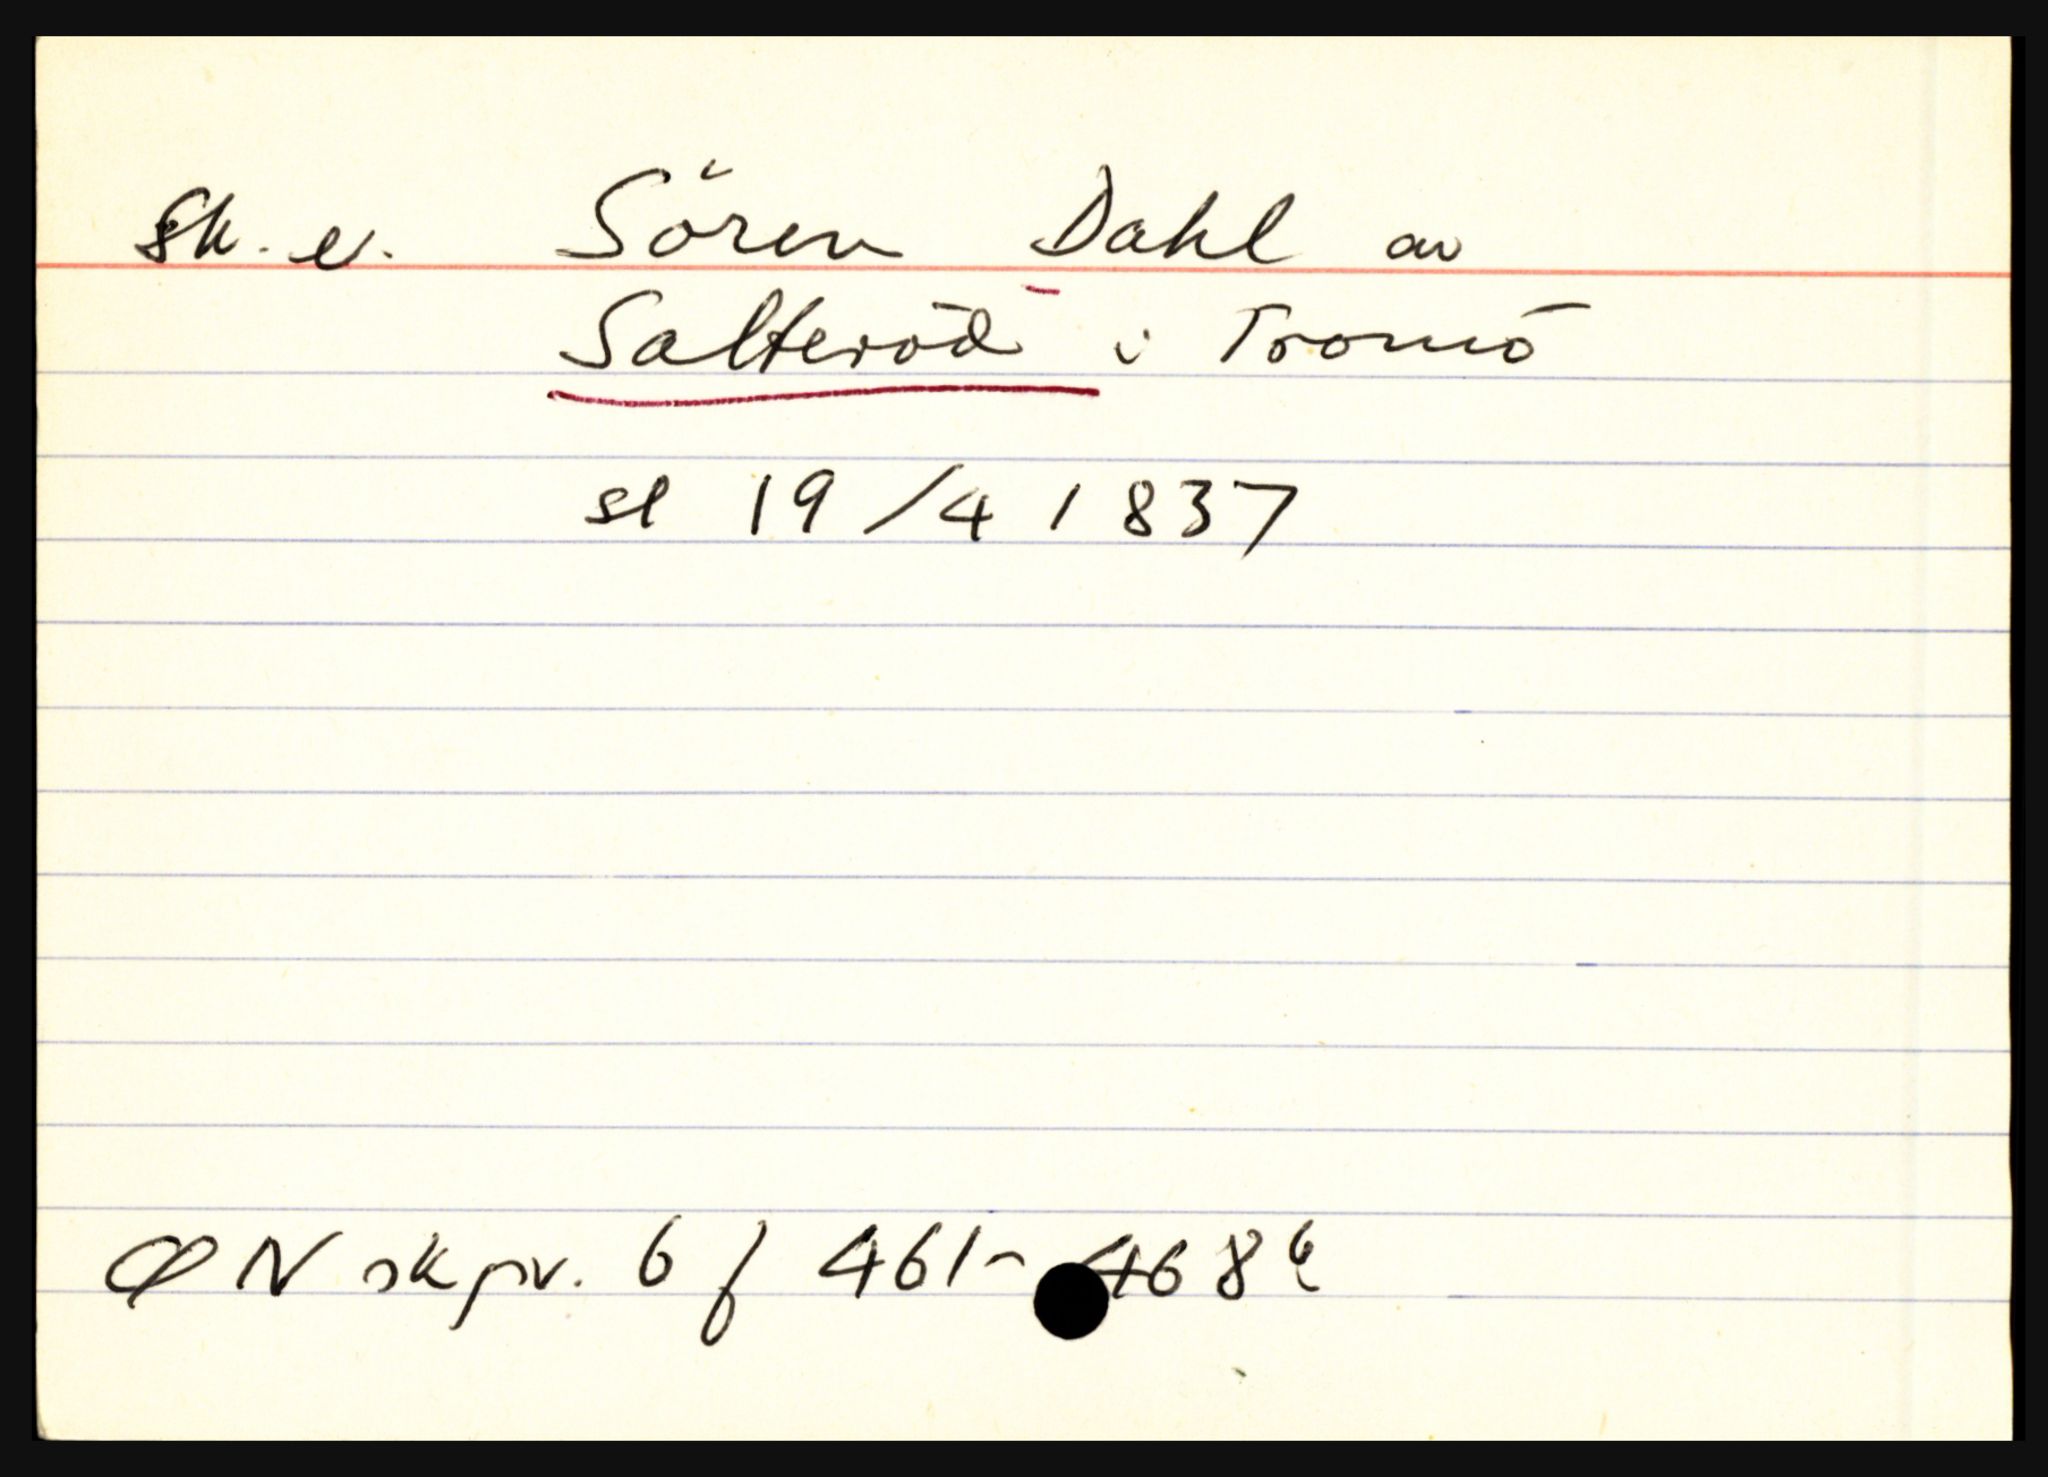 Sk. e. Sören Dahl av
Salteröd i Tromö
sl 19/4 1837
ØN skpr. 6 f 461- 468 b